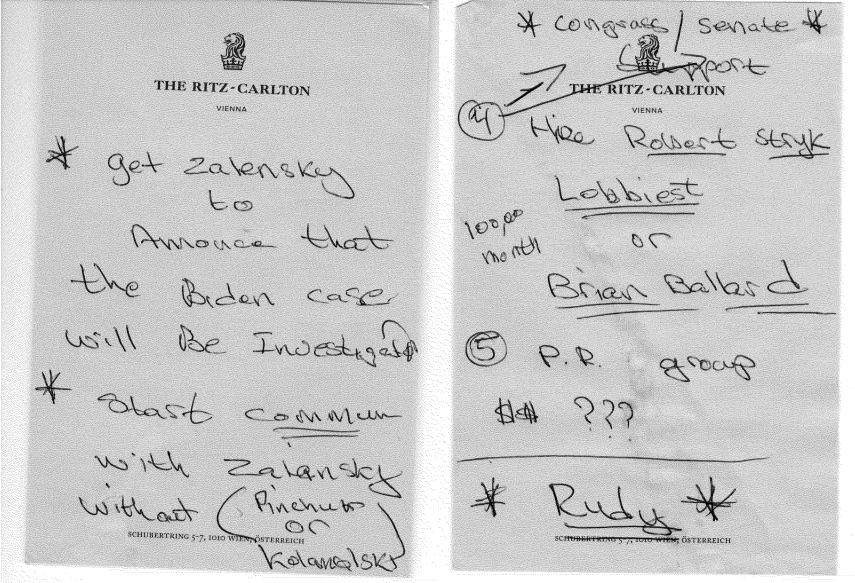 THE RITZ-CARLTON
VIENNA
* get Zalensky
to
Annouce that
the Biden case
will Be Investigated
* Start commun
with Zalensky
without (Pinchuk
or
Kolamoisky)
SCHUBERTRING 5-7, 1010 WIEN, ÖSTERREICH
* Congrass / Senate *
Support
THE RITZ-CARLTON
VIENNA
4 Hire Robert Stryk
Lobbiest
100,00
month
or
Brian Ballard
5 P.R. group
$$ ???
* Rudy *
SCHUBERTRING 5-7, 1010 WIEN, ÖSTERREICH